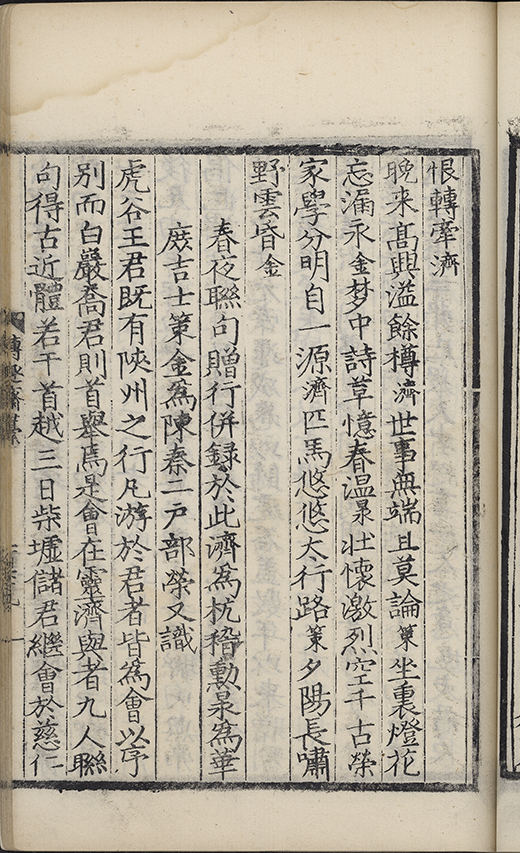 恨轉牽濟
晚來髙興溢餘樽濟世事無端且莫論策坐裏燈花
忘漏永金梦中詩草憶春温杲壯懷激烈空千古榮
家學分明自一源濟匹馬悠悠太行路策夕陽長嘯
野雲昏金
春夜聯句贈行併録於此濟爲杭稽勳杲爲華
庻吉士策金爲陳秦二戸部榮又識
虎谷王君既有陜州之行凡游於君者皆爲會以序
别而白巖喬君則首舉焉是會在靈濟與者九人聯
句得古近體若干首越三日柴墟儲君繼會於慈仁